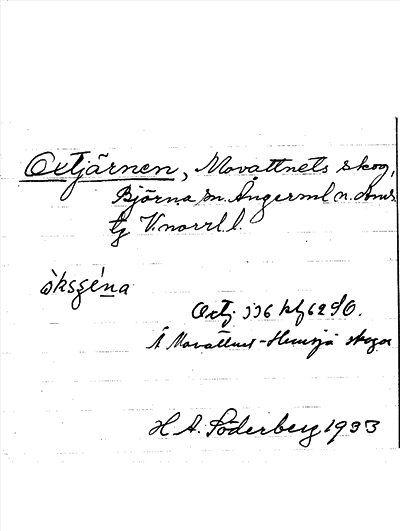 Oxtjärnen, Movattnets skog,
Björna sn. Ångerml. n. dmds
tg V.norrl. l.
öksʒéna
Oxtj. 336 kf 62 SO.
Å Movattnet-Hemsjö skogar
H. A. Söderberg 1933